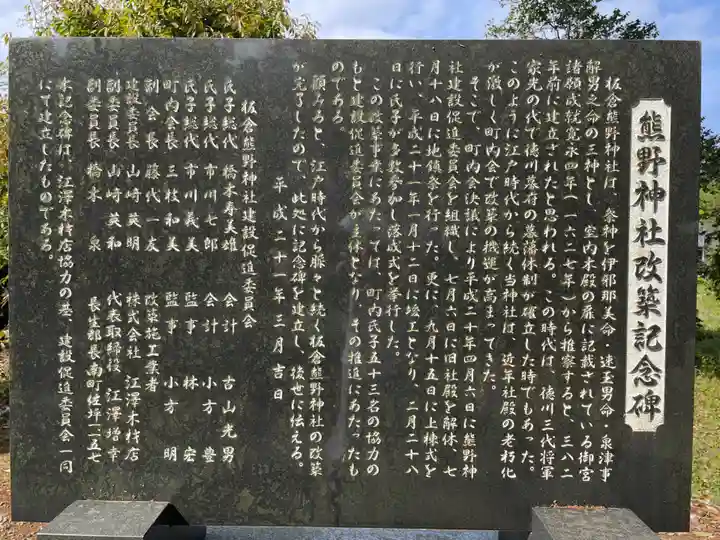 熊野神社改築記念碑
板倉熊野神社は、祭神を伊邪那美命・速玉男命・泉津事
解男之命の三神とし、室内本殿の扉に記載されている御宮
諸願成就寛永四年(一六二七年)から推察すると、三八二
年前に建立されたと思われる。この時代は、徳川三代将軍
家光の代で徳川幕府の幕藩体制が確立した時でもあった。
このように江戸時代から続く当神社は、近年社殿の老朽化
が激しく町内会で改築の機運が高まってきた。
そこで、町内会決議により平成二十年四月六日に熊野神
社建設促進委員会を組織し、七月六日に旧社殿を解体、七
月十八日に地鎮祭を行った。更に、九月十五日に上棟式を
行い、平成二十一年一月十二日に竣工となり、二月二十八
日に氏子が多数参加し落成式を挙行した。
この改築事業にあたっては、町内氏子五十三名の協力の
もと建設促進委員会が主体となり、その推進にあたったも
のである。
顧みると、江戸時代から脈々と続く板倉熊野神社の改築
が完了したので、此処に記念碑を建立し、後世に伝える。
平成二十一年三月吉日
板倉熊野神社建設促進委員会
氏子総代 橋本寿美雄 会計 古山光男
氏子総代 市川七郎 会計 小方豊
氏子総代 市川義美 監事 林宏
町内会長 三枝和美 監事 小方明
副会長 藤代一友 改築施工業者
建設委員長 山崎英明 株式会社 江澤木材店
副委員長 山崎英和 代表取締役 江澤増幸
副委員長 橋本泉 長生郡長南町佐坪一五七
本記念碑は、江澤木材店協力の基、建設促進委員会一同
にて建立したものである。